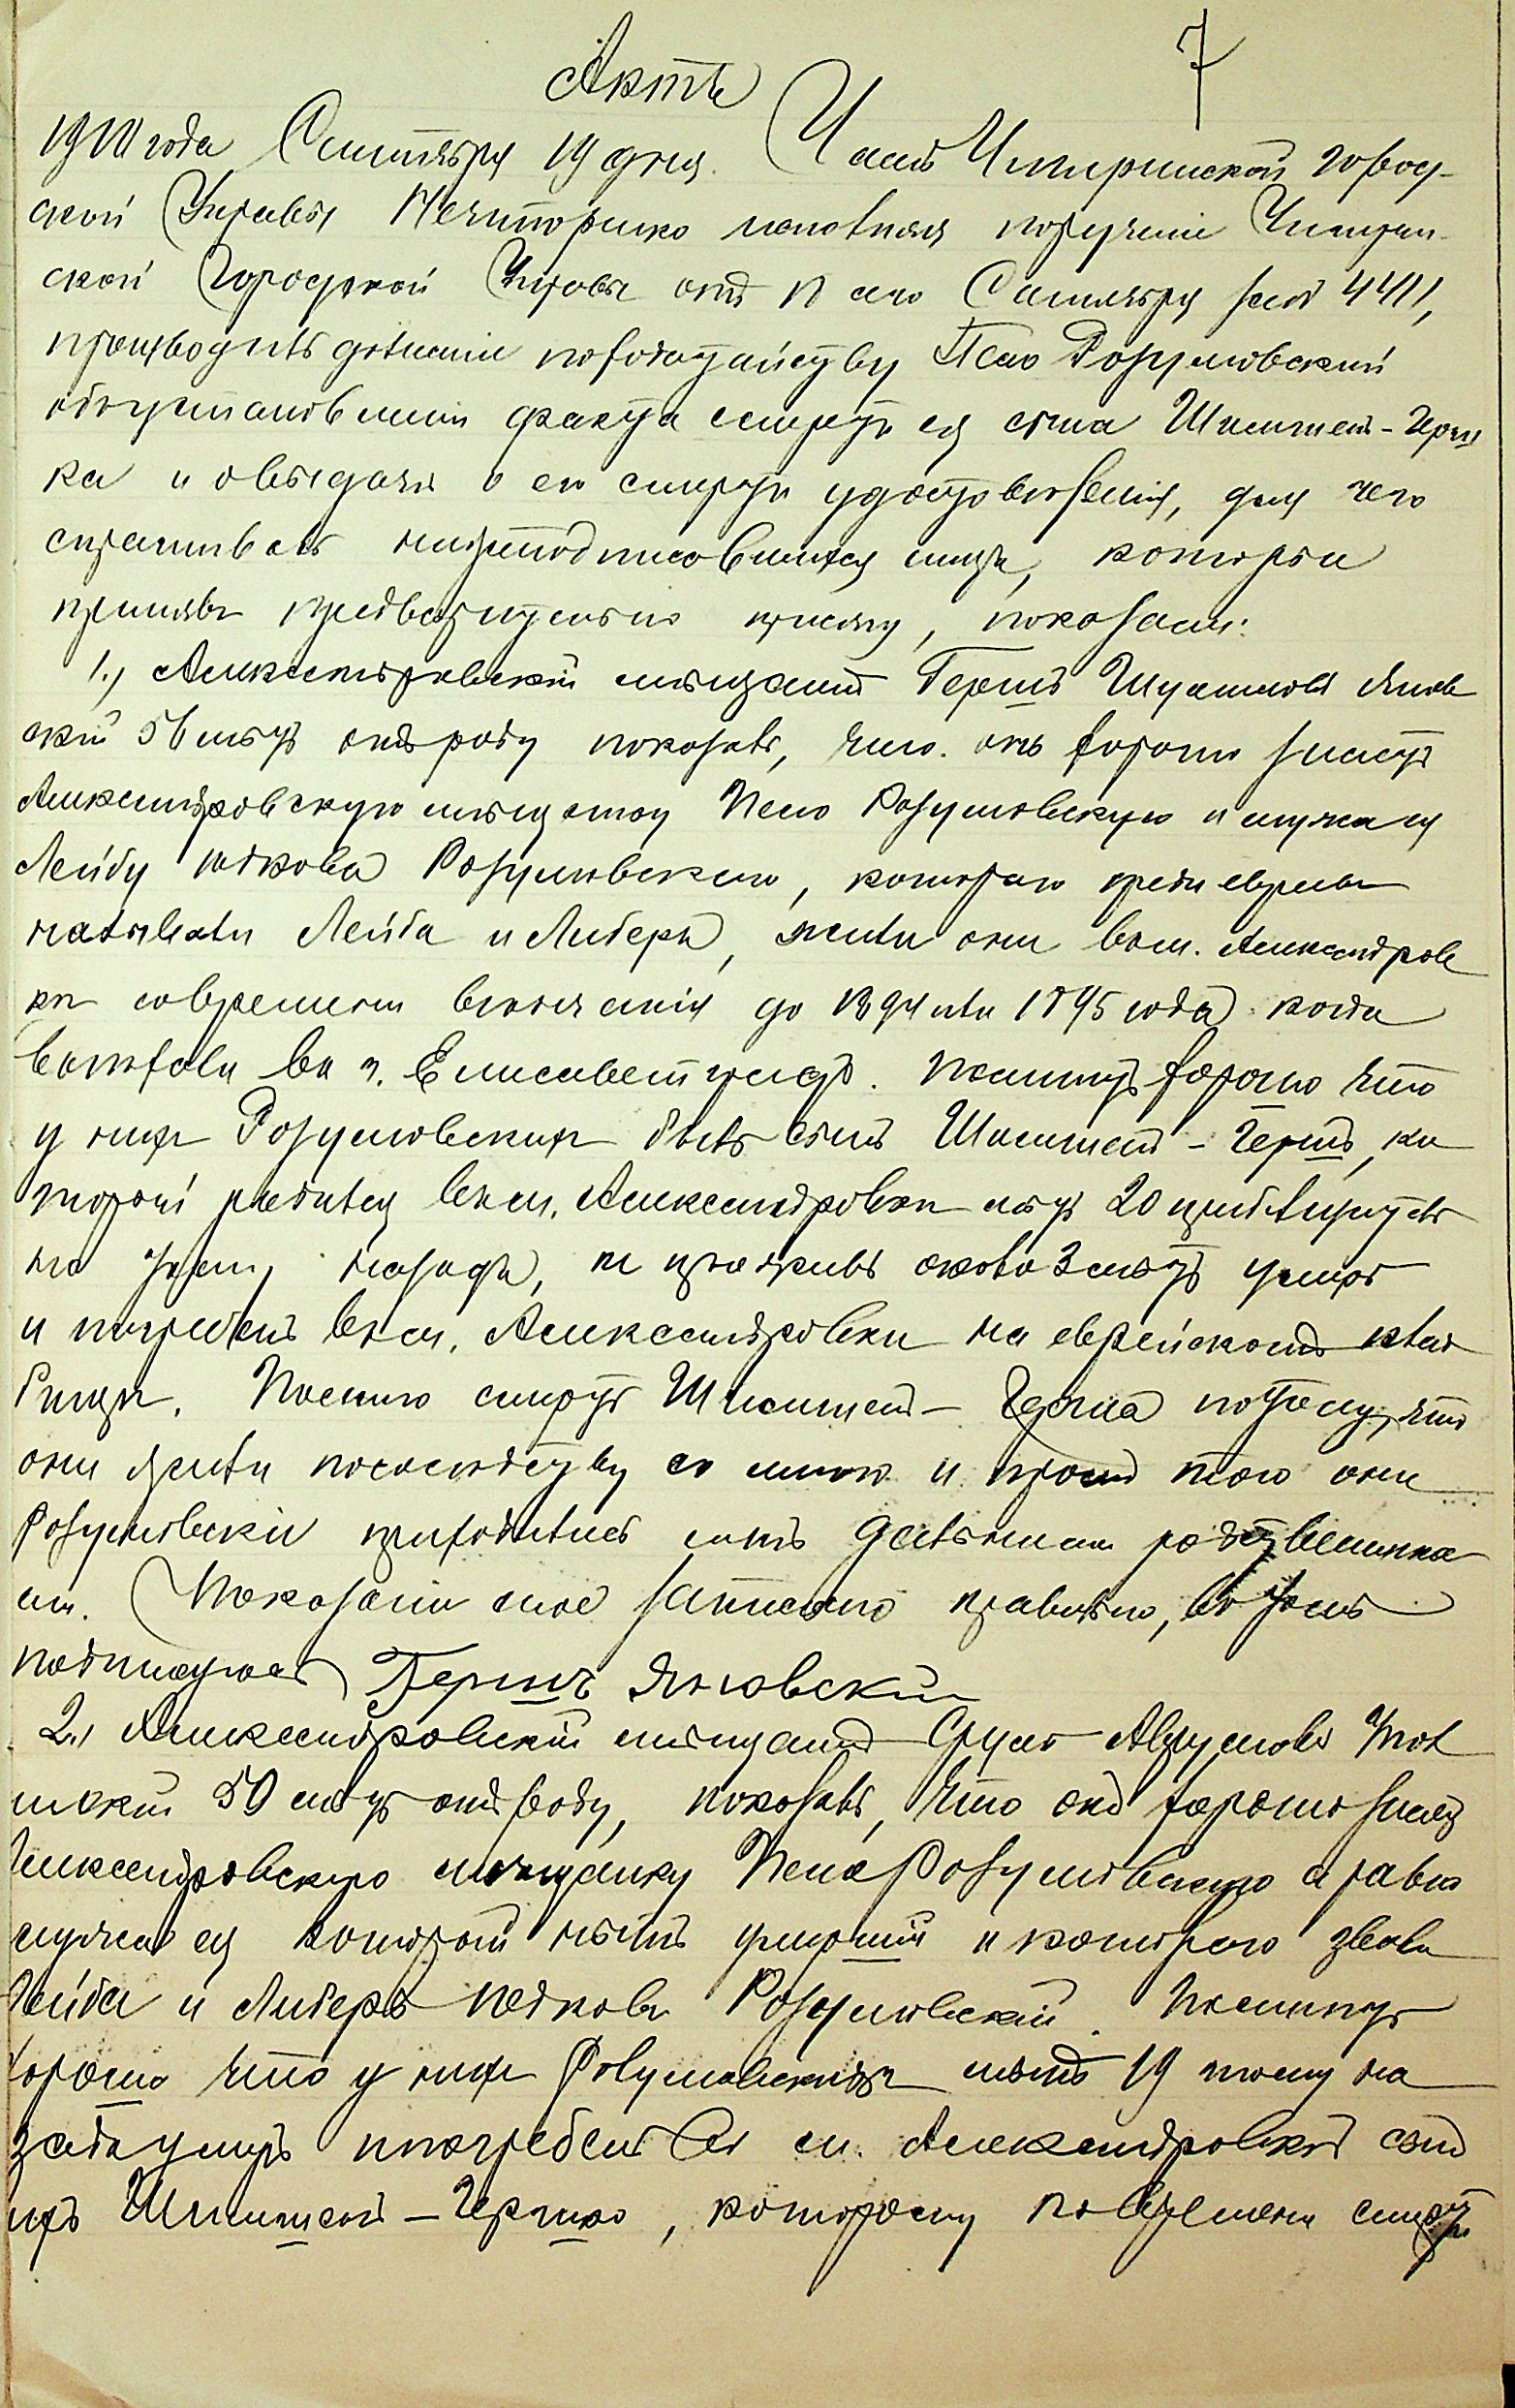 Актъ
7
1910 года Сентября 19 дня. Членъ Чигиринской город-
ской Управы Нечипоренко исполняя порученіе Чигирин-
ской Городской Управы отъ сего Сентября за № 4411,
производилъ дознаніе по ходатайству Песи Розумовской
объ установленіи факта смерти ея сына Шлиомы-Герш
ка и о выдачѣ о его смерти удостовѣренія, для чего
спрашивалъ нижеподписавшихся лицъ, которые
принявъ предварительно присягу, показали:
1., Александровскій мѣщанинъ Гершъ Янов
скій 56 лѣтъ отъ роду показалъ, что онъ хорошо знаетъ
Александровскую мѣщанку Песю Розумовскую и мужа ея
Лейбу Розумовскаго, котораго среди евреевъ
называли Лейба и Либеръ, жили они въ м. Александров
кѣ до 1895 года когда
выѣхали въ г. Елисаветградъ. Помнитъ хорошо что
у нихъ Розумовскихъ былъ сынъ Гершъ, ко
торый родился въ м. Александровкѣ лѣтъ 20 приблизитель
но тому назадъ, и проживъ около 3 лѣтъ умеръ
и погребенъ въ м. Александровкѣ на еврейскомъ клад
бищѣ. Помню смерть Герша потому, что
они жили по сосѣдству со мною и кромѣ того они
Розумовскіе приходились мнѣ дальними родственника
ми. Показаніе мое записано правильно, въ чемъ
подписуюсь Гершъ Яновскій
2., Александровскій мѣщанинъ Сруль Аврумовъ
50 лѣтъ отъ роду, показалъ, что онъ хорошо знаетъ
Александровскую мѣщанку Песю Розумовскую а равно
мужа ея который нынѣ умершій и котораго звали
Лейба и Либеръ Розумовскій. Помнитъ
хорошо что у нихъ Розумовскихъ лѣтъ 19 тому на
задъ умеръ и погребенъ въ м. Александровкѣ сынъ
ихъ Гершко, которому ко времени смерти